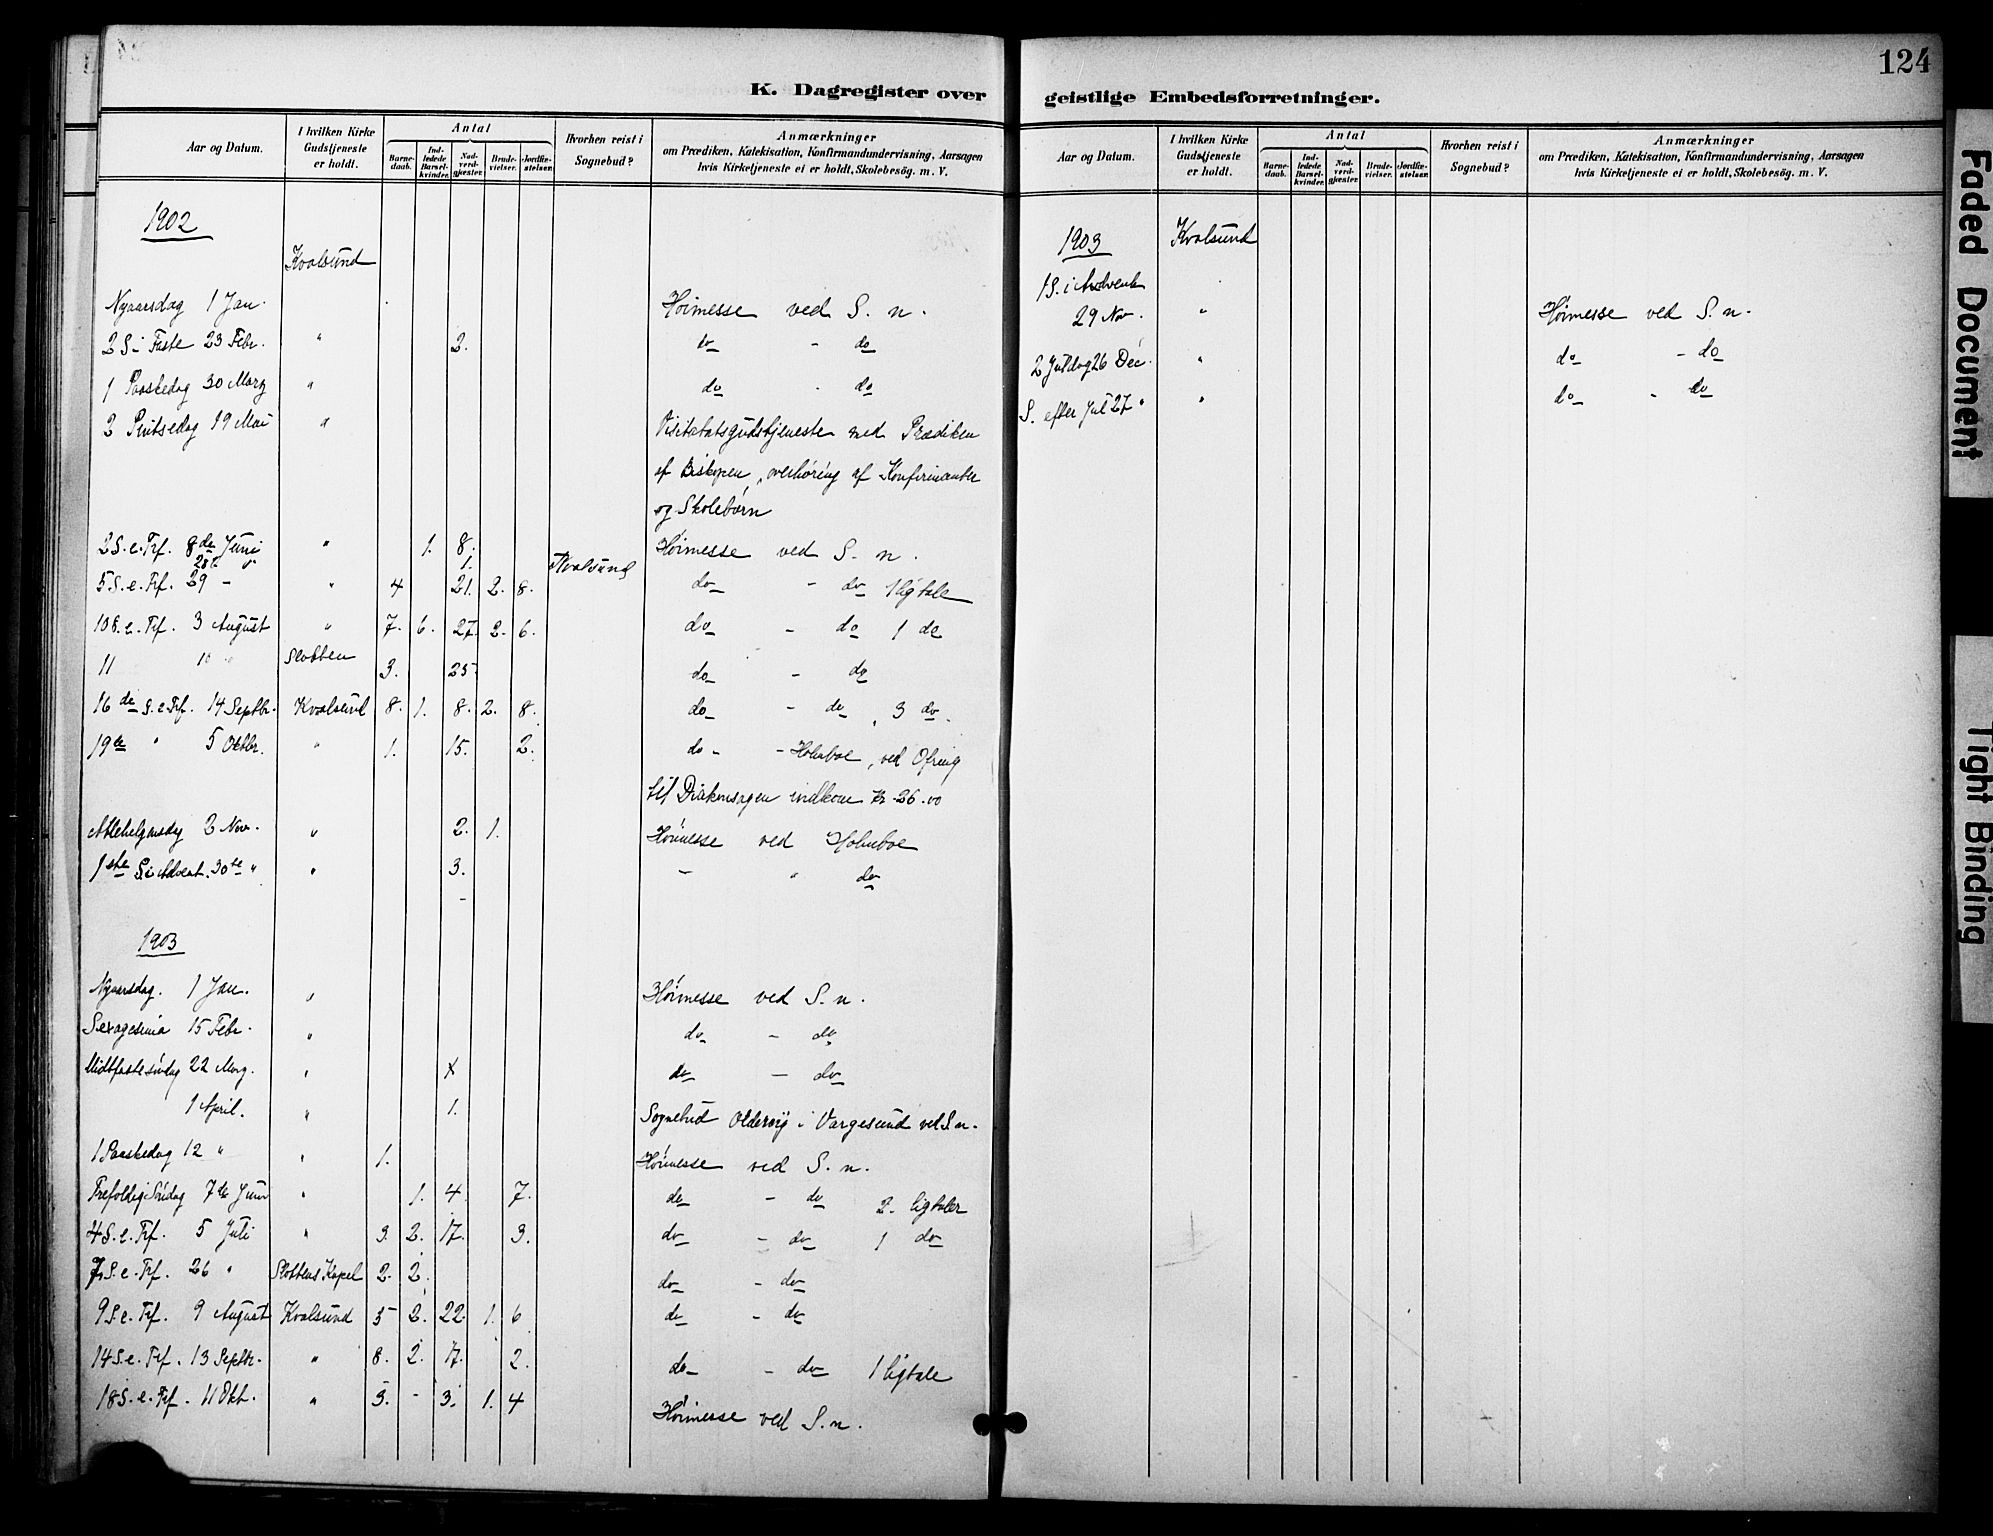 124
K. Dagregister over geistlige Embedsforretninger.
Aar og Datum. I hvilken Kirke Gudstjeneste er holdt. Antal Barnedaab. Indledede Barselkvinder. Nadverdgjester. Brudevielser. Jordfæstelser. Hvorhen reist i Sognebud? Anmærkninger om Prædiken, Katekisation, Konfirmandundervisning, Aarsagen hvis Kirketjeneste ei er holdt, Skolebesög. m. V.
1902
Kvalsund
Nyaarsdag 1 Jan. Høimesse ved S. n.
2 S i Faste 23 Febr. " 2. do - do
1 Paaskedag 30 Marz " do - do
2 Pintsedag 19 Mai " Visitatsgudstjeneste med Prædiken
af Biskopen, overhøring af Konfirmanter
og Skolebørn
2 S. e. Trf. 8de Juni " 1. 8. Høimesse ved S. n.
28 " 1. Kvalsund
5 S. e. Trf. 29 - " 4 21. 2. 8. do - do 1 ligtale
10 S. e. Trf. 3 August " 7. 6. 27. 2. 6. do - do 1 do
11 10 " Slotten 3. 25. do - do
16de S. e. Trf. 14 Septbr. Kvalsund 8. 1. 8. 2. 8. do - do, 3 do.
19de " 5 Oktbr. " 1. 15. 2. do - - Holmboe, ved Ofring
til Diakonsagen indkom Kr. 26.00
Allehelgensdg 2 Nov. " 2. 1. Høimesse ved Holmboe
1ste S. i Advent. 30te " " 3. - " do
1903
Nyaarsdag. 1 Jan. " Høimesse ved S. n.
Sexagesima 15 Febr. " do - do
Midtfastesøndag 22 Marz. " X do - do
1 April. " 1. Sognebud Oldervig i Vargesund ved S. n.
1 Paaskedag 12 " " 1. Høimesse ved S. n.
Trefoldig. Søndag 7de Juni " 1. 4. 7. do - do 2. ligtaler
4 S. e. Trf. 5 Juli " 3. 2. 17. 3. do - do 1 do
7 S. e. Trf. 26 " Slottens Kapel 2. 2. do - do
9 S. e. Trf. 9 August Kvalsund 5 2. 22. 1. 6 do - do
14 S. e. Trf. 13 Septbr. " 8. 2. 17. 2. do - do 1 ligtale
18 S. e. Trf. 11 Okt. " 3. - 3. 1. 4 Høimesse ved S. n.
Aar og Datum. I hvilken Kirke Gudstjeneste er holdt. Antal Barnedaab. Indledede Barselkvinder. Nadverdgjester. Brudevielser. Jordfæstelser. Hvorhen reist i Sognebud? Anmærkninger om Prædiken, Katekisation, Konfirmandundervisning, Aarsagen hvis Kirketjeneste ei er holdt, Skolebesög. m. V.
1903 Kvalsund
1 S. i Advent
29 Nov. " Høimesse ved S. n.
2 Juldag 26 Dec. " do - do
S. efter Jul 27 " " do - do
Faded Document
Tight Binding